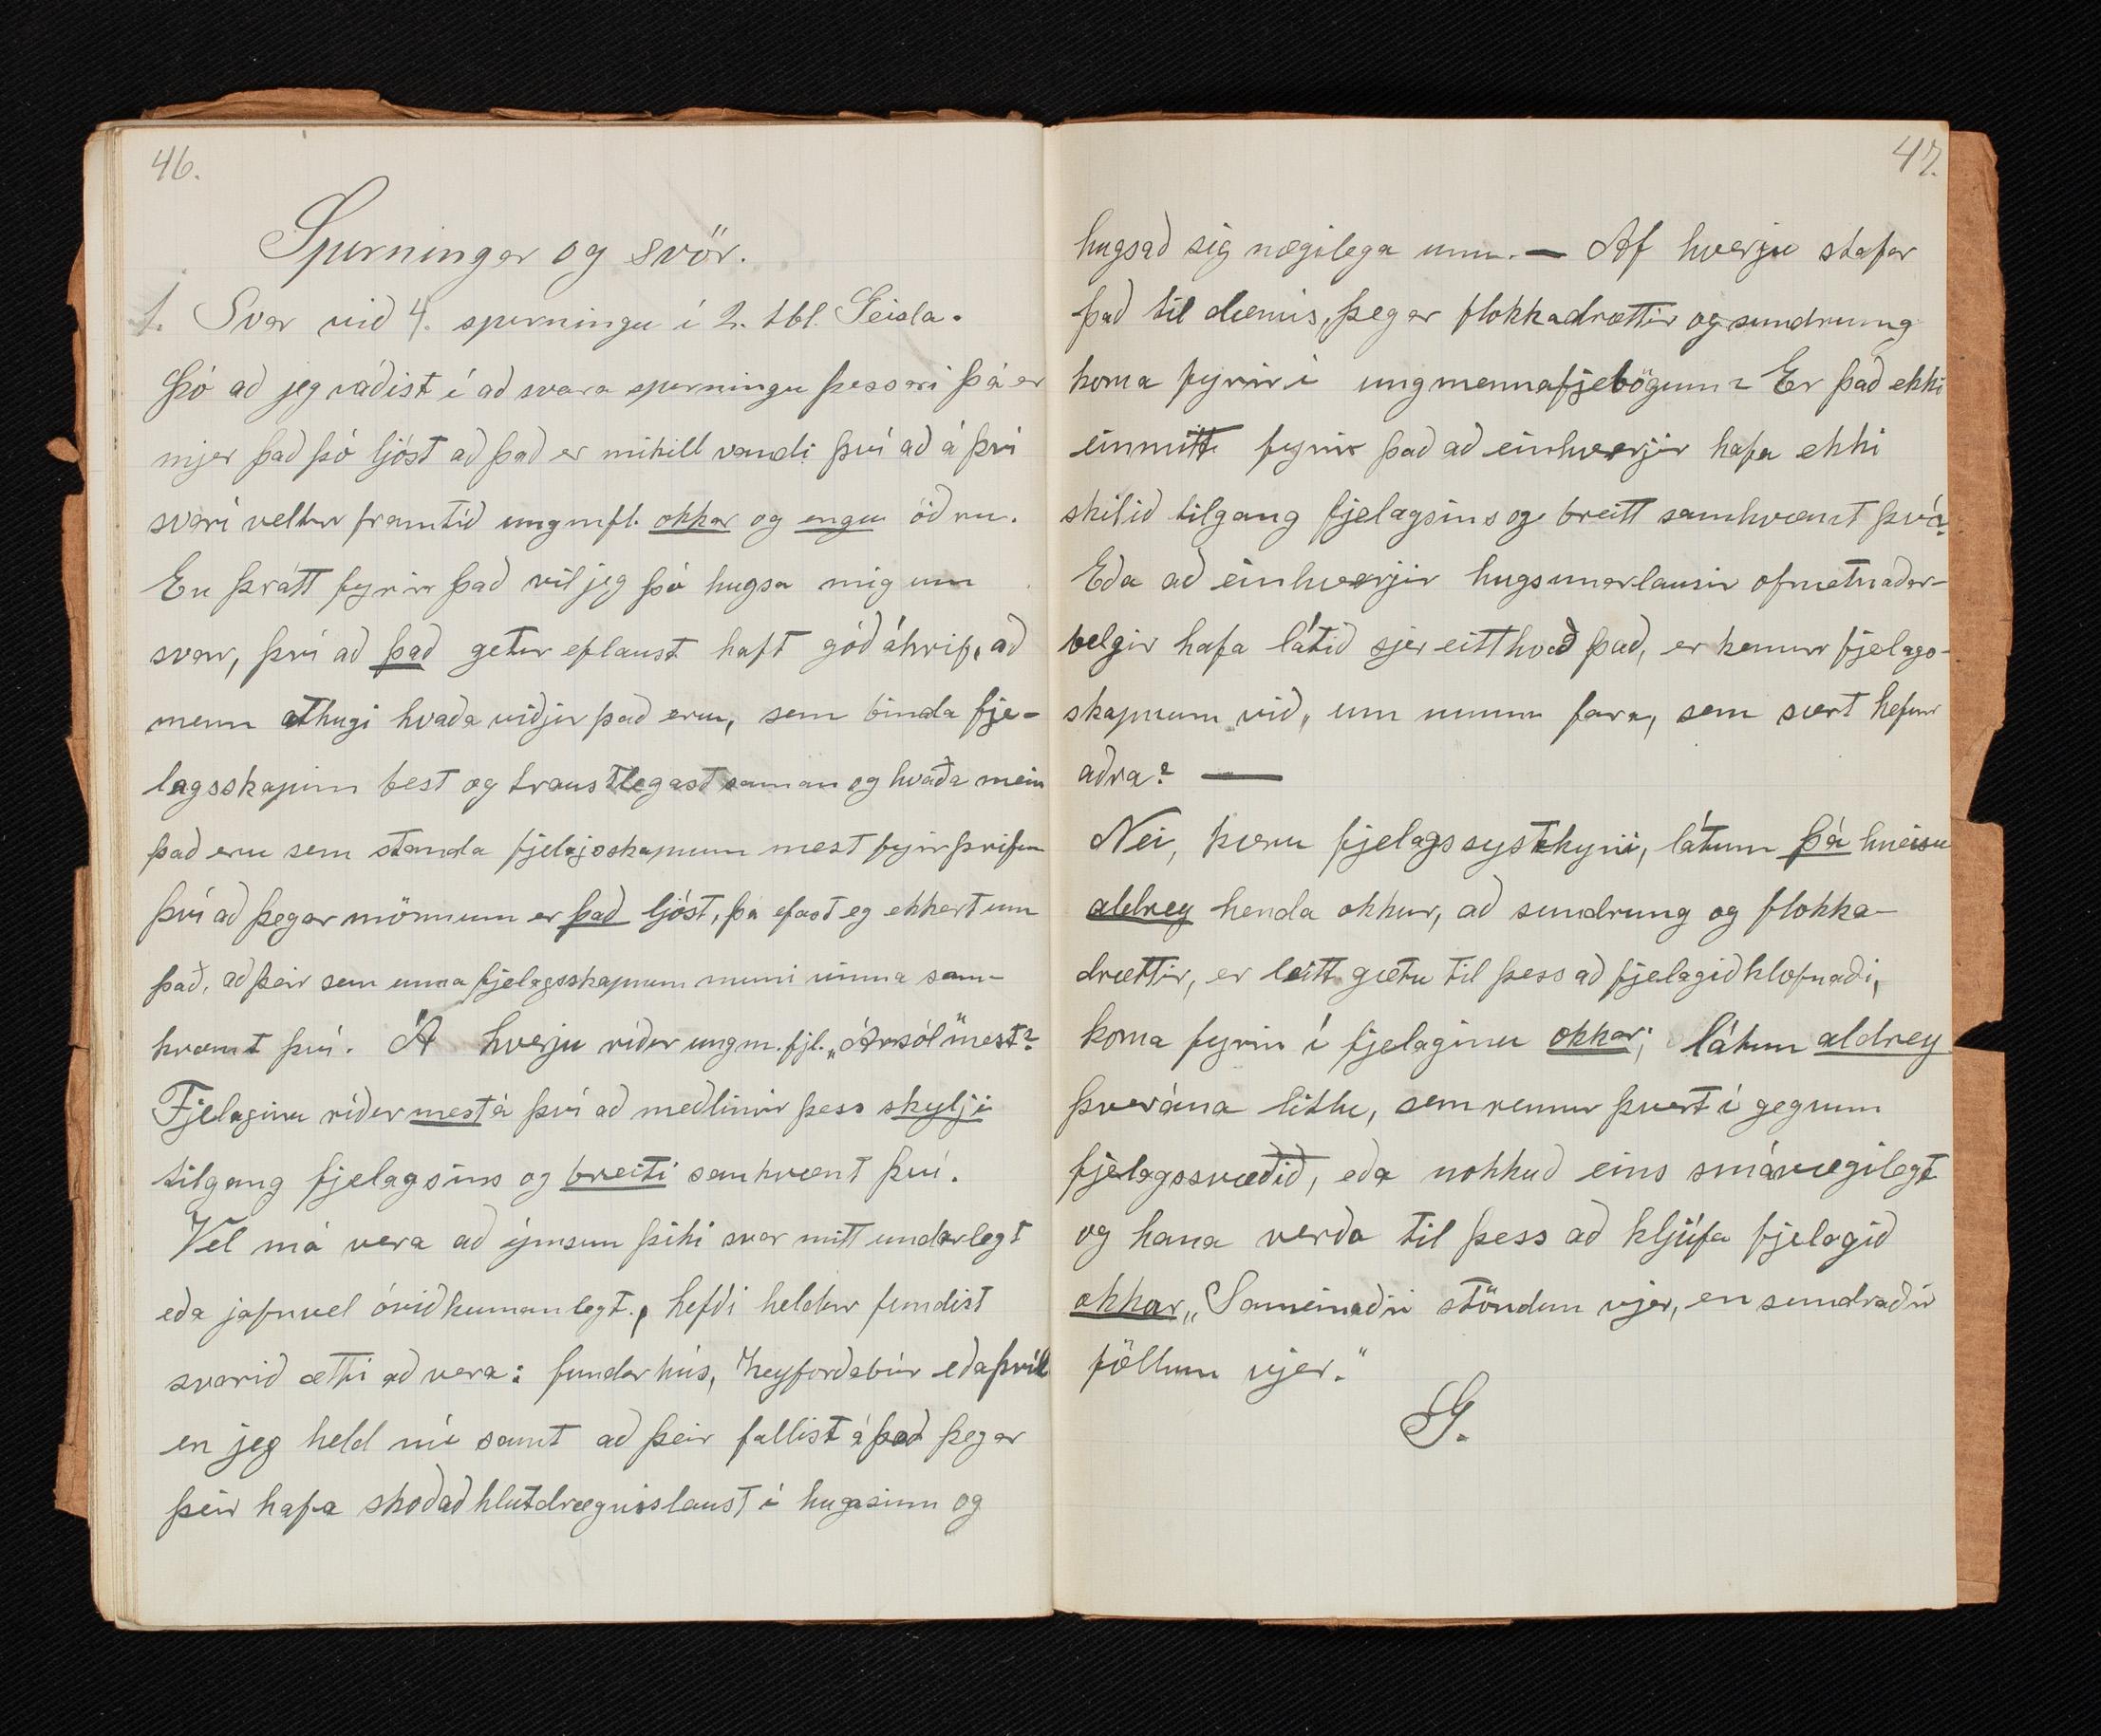 46.
Spurningar og svör.
1. Svar við 4. spurningu í 2. tbl. Geisla.
Þó að jeg ráðist í að svara spurningu þessari þá er
mjer það þó ljóst að það er mikill vandi því að á því
svari veltur framtíð ungmfl. okkar og engu öðru.
En þrátt fyrir það vil jeg þó hugsa mig um
svar, því að það getur eflaust haft góð áhrif, að
menn athugi hvaða viðjir það eru, sem binda fje-
lagsskapinn best og traustlegast saman og hvaða mein
það eru sem standa fjelagsskapnum mest fyrir þrifum
því að þegar mönnum er það ljóst, þá efast eg ekkert um
það, að þeir sem unna fjelagsskapnum muni vinna sam-
kvæmt því. Á hverju ríður ungm. fjl. „Ársól" mest?
Fjelaginu ríður mest á því að meðlimir þess skylji
tilgang fjelagsins og breiti samkvæmt því.
Vel má vera að ýmsum þiki svar mitt undarlegt
eða jafnvel óviðkunanlegt, hefði heldur fundist
svarið ætti að vera: fundarhús, heyforðabúr eða þvíl
en jeg held nú samt að þeir fallist á það þegar
þeir hafa skoðað hlutdrægnislaust í huga sinn og
47.
hugsað sig nægilega um. — Af hverju stafar
það til dæmis, þegar flokkadrættir og sundrung
koma fyrir í ungmennafjelögum? Er það ekki
einmitt fyrir það að einhverjir hafa ekki
skilið tilgang fjelagsins og breitt samkvæmt því?
Eða að einhverjir hugsunarlausir ofmetnaðar-
belgir hafa látið sjer eitthvað það, er kemur fjelags-
skapnum við, um munn fara, sem sært hefur
aðra? —
Nei, kæru fjelagssystkyni, látum þá hneisu
aldrey henda okkur, að sundrung og flokka-
drættir, er leitt gætu til þess að fjelagið klofnaði,
koma fyrir í fjelaginu okkar; látum aldrey
þverána litlu, sem rennur þvert í gegnum
fjelagssvæðið, eða nokkuð eins smávægilegt
og hana verða til þess að kljúfa fjelagið
okkar. „Sameinaðir stöndum vjer, en sundraðir
föllum vjer."
G.